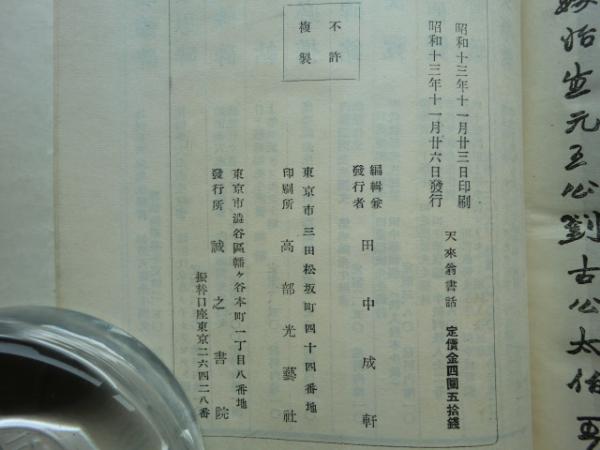 嫁怡㞢元王公劉古公太伯再
昭和十三年十一月廿三日印刷
昭和十三年十一月廿六日發行
天來翁書話　定價金四圓五拾錢
不許複製
編輯兼發行者　田中成軒
東京市三田松坂町四十四番地
印刷所　高部光藝社
東京市澁谷區幡ヶ谷本町一丁目八番地
發行所　誠之書院
振替口座東京二六四二八番